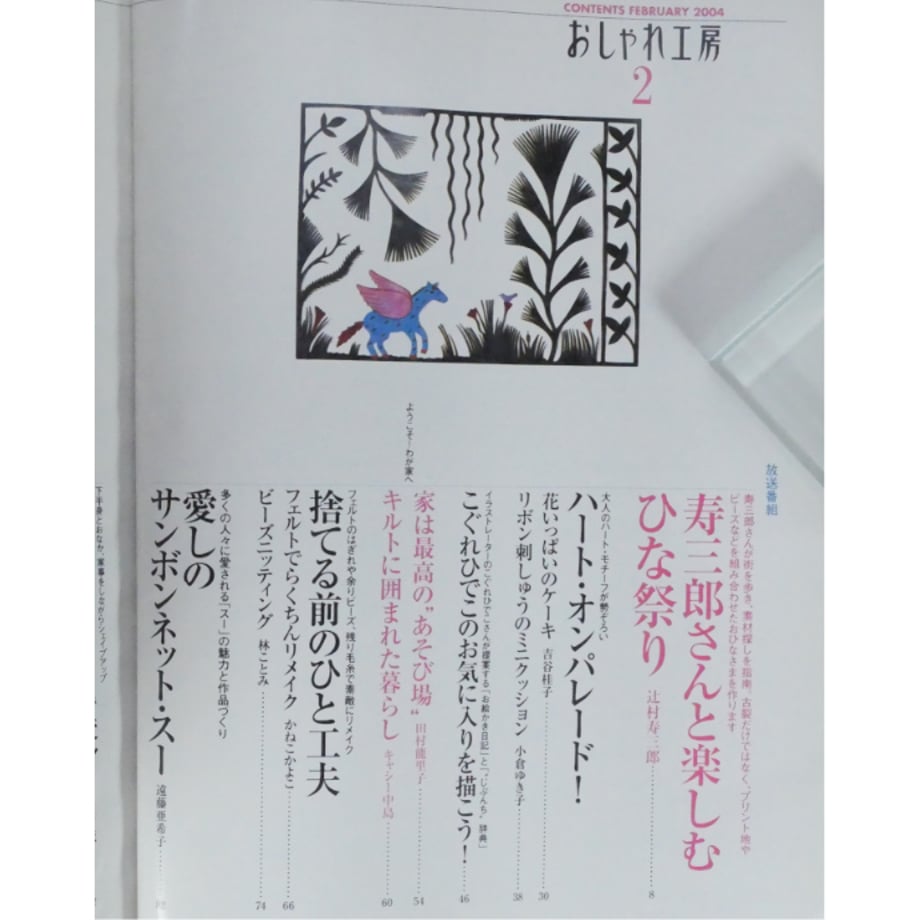 CONTENTS FEBRUARY 2004
おしゃれ工房
2
放送番組
寿三郎さんが街を歩き、素材探しを指南。古裂だけではなく、プリント地や
ビーズなどを組み合わせたおひなさまを作ります
寿三郎さんと楽しむ
ひな祭り 辻村寿三郎………8
大人のハート・モチーフが勢ぞろい
ハート・オンパレード!
花いっぱいのケーキ 吉谷桂子………30
リボン刺しゅうのミニクッション 小倉ゆき子………38
イラストレーターのこぐれひでこさんが提案する「お絵かき日記」と「“じぶんち”辞典」
こぐれひでこのお気に入りを描こう!………46
ようこそ!わが家へ
家は最高の“あそび場” 田村能里子………54
キルトに囲まれた暮らし キャシー中島………60
フェルトのはぎれや余りビーズ、残り毛糸で素敵にリメイク
捨てる前のひと工夫
フェルトでらくちんリメイク かねこかよこ………66
ビーズニッティング 林ことみ………74
多くの人々に愛される「スー」の魅力と作品づくり
愛しの
サンボンネット・スー 遠藤亜希子………
下半身とおなか、家事をしながらシェイプアップ